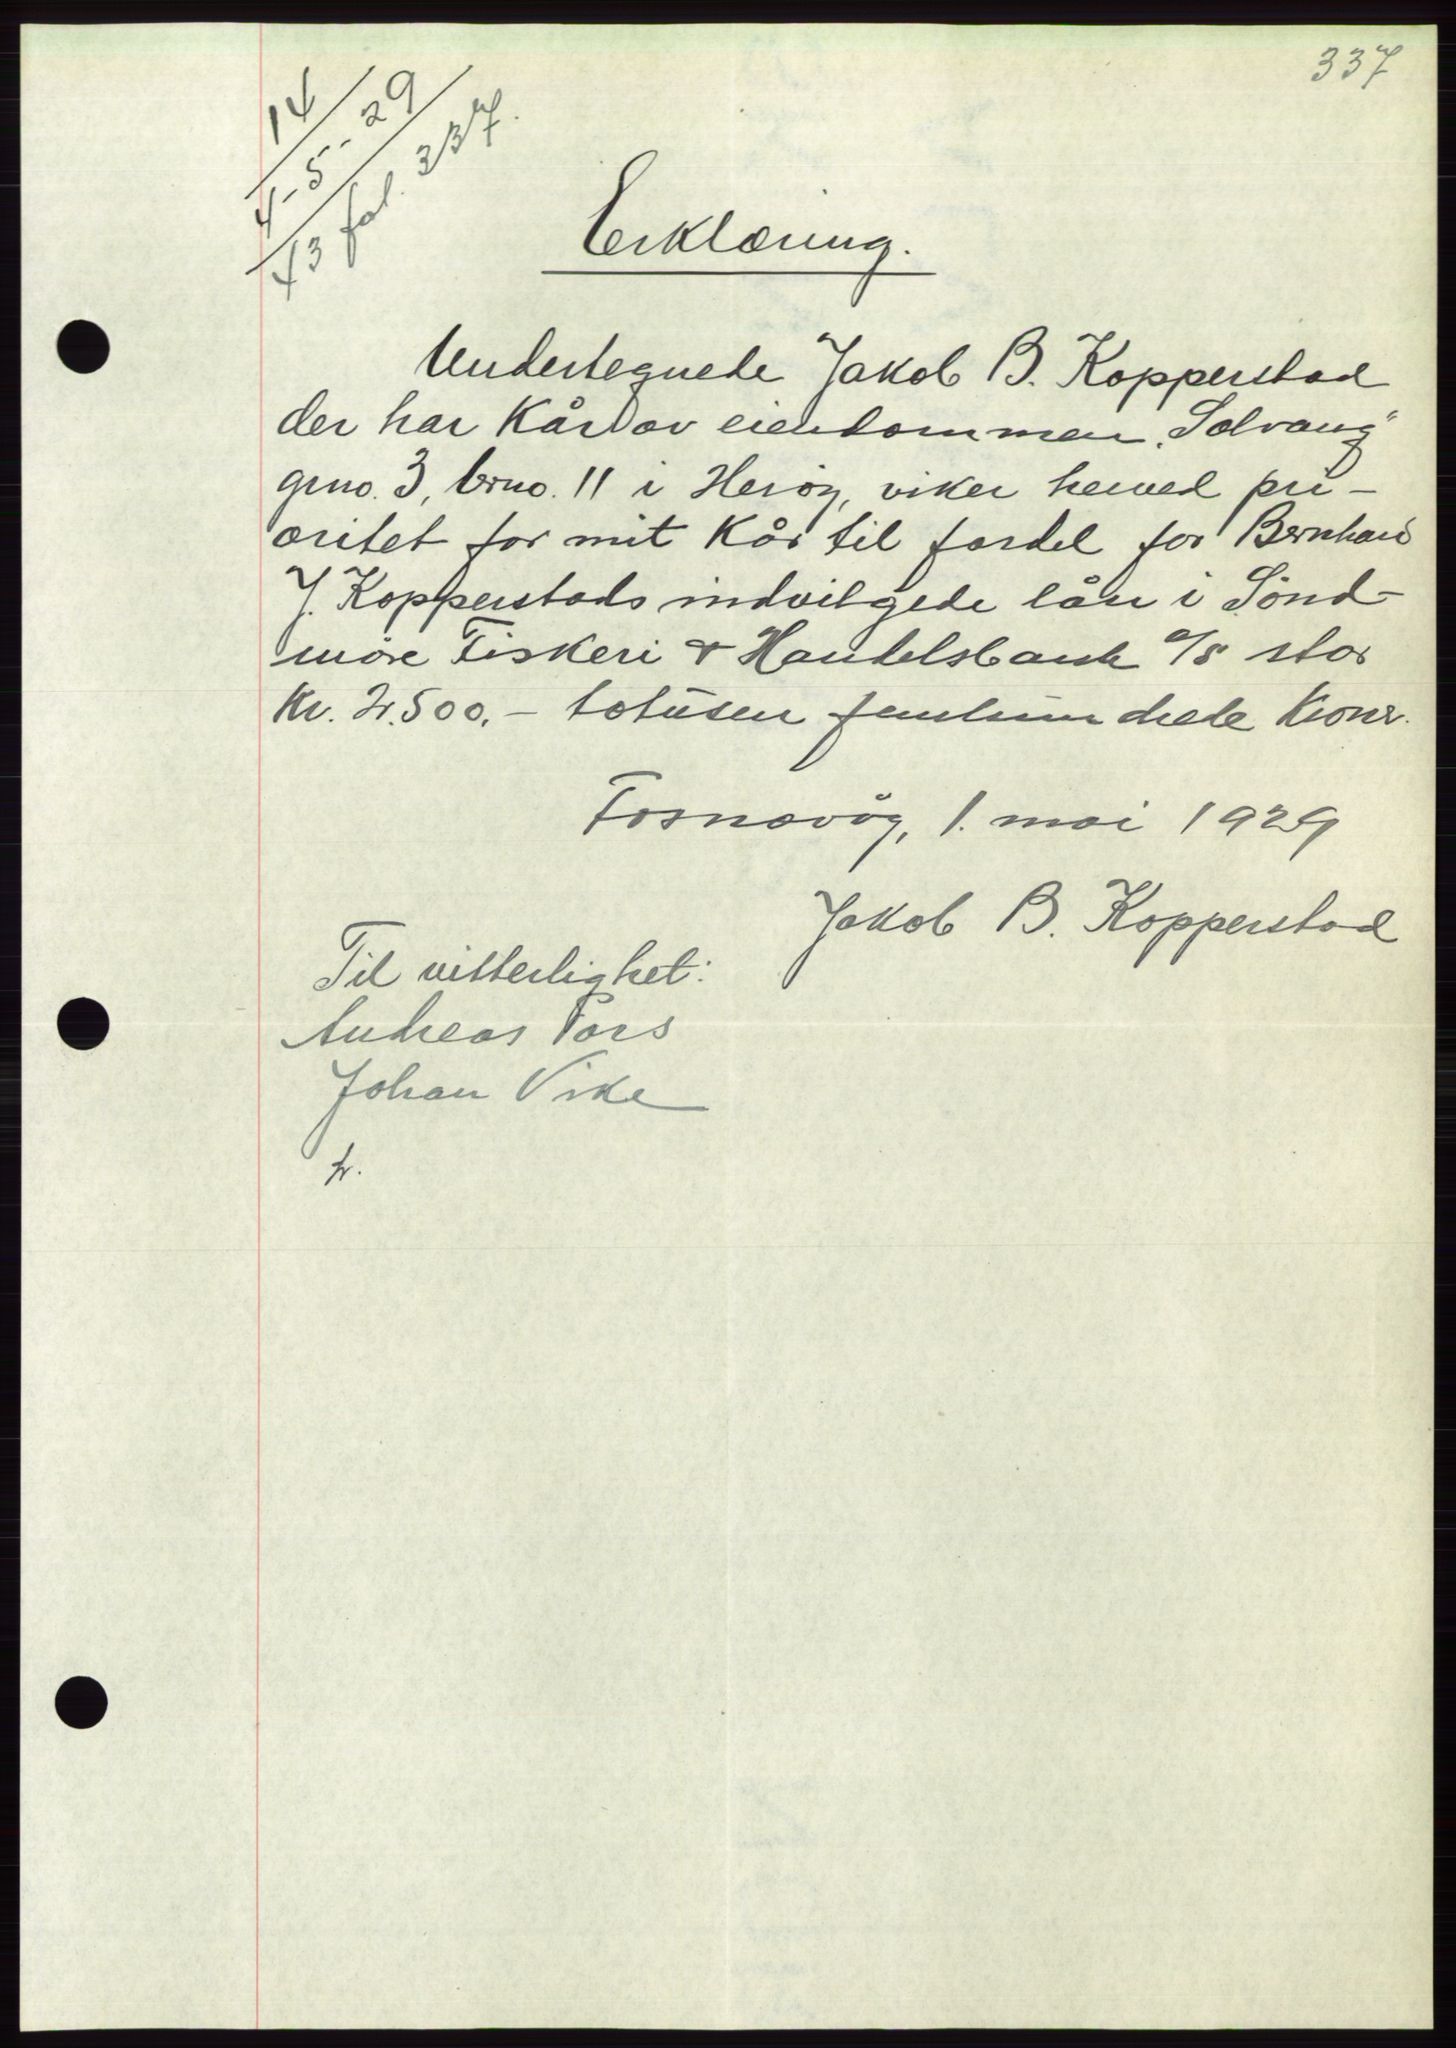 337
14/
4-5-29/
43 fol. 337.
Erklæring.
Undertegnede Jakob B. Kopperstad
der har kår av eiendommen „Solvang"
grno. 3, brno. 11 i Heröy, viker herved pri-
oritet for mit kår til fordel for Bernhard
J. Kopperstads indvilgede lån i Sönd-
möre Fiskeri & Handelsbank a/s stor
Kr. 2.500.- totusen femhundrede Kroner.
Fosnavåg, 1. mai 1929
Jakob B. Kopperstad
Til vitterlighet:
Andreas Voldsund
Johan Vike